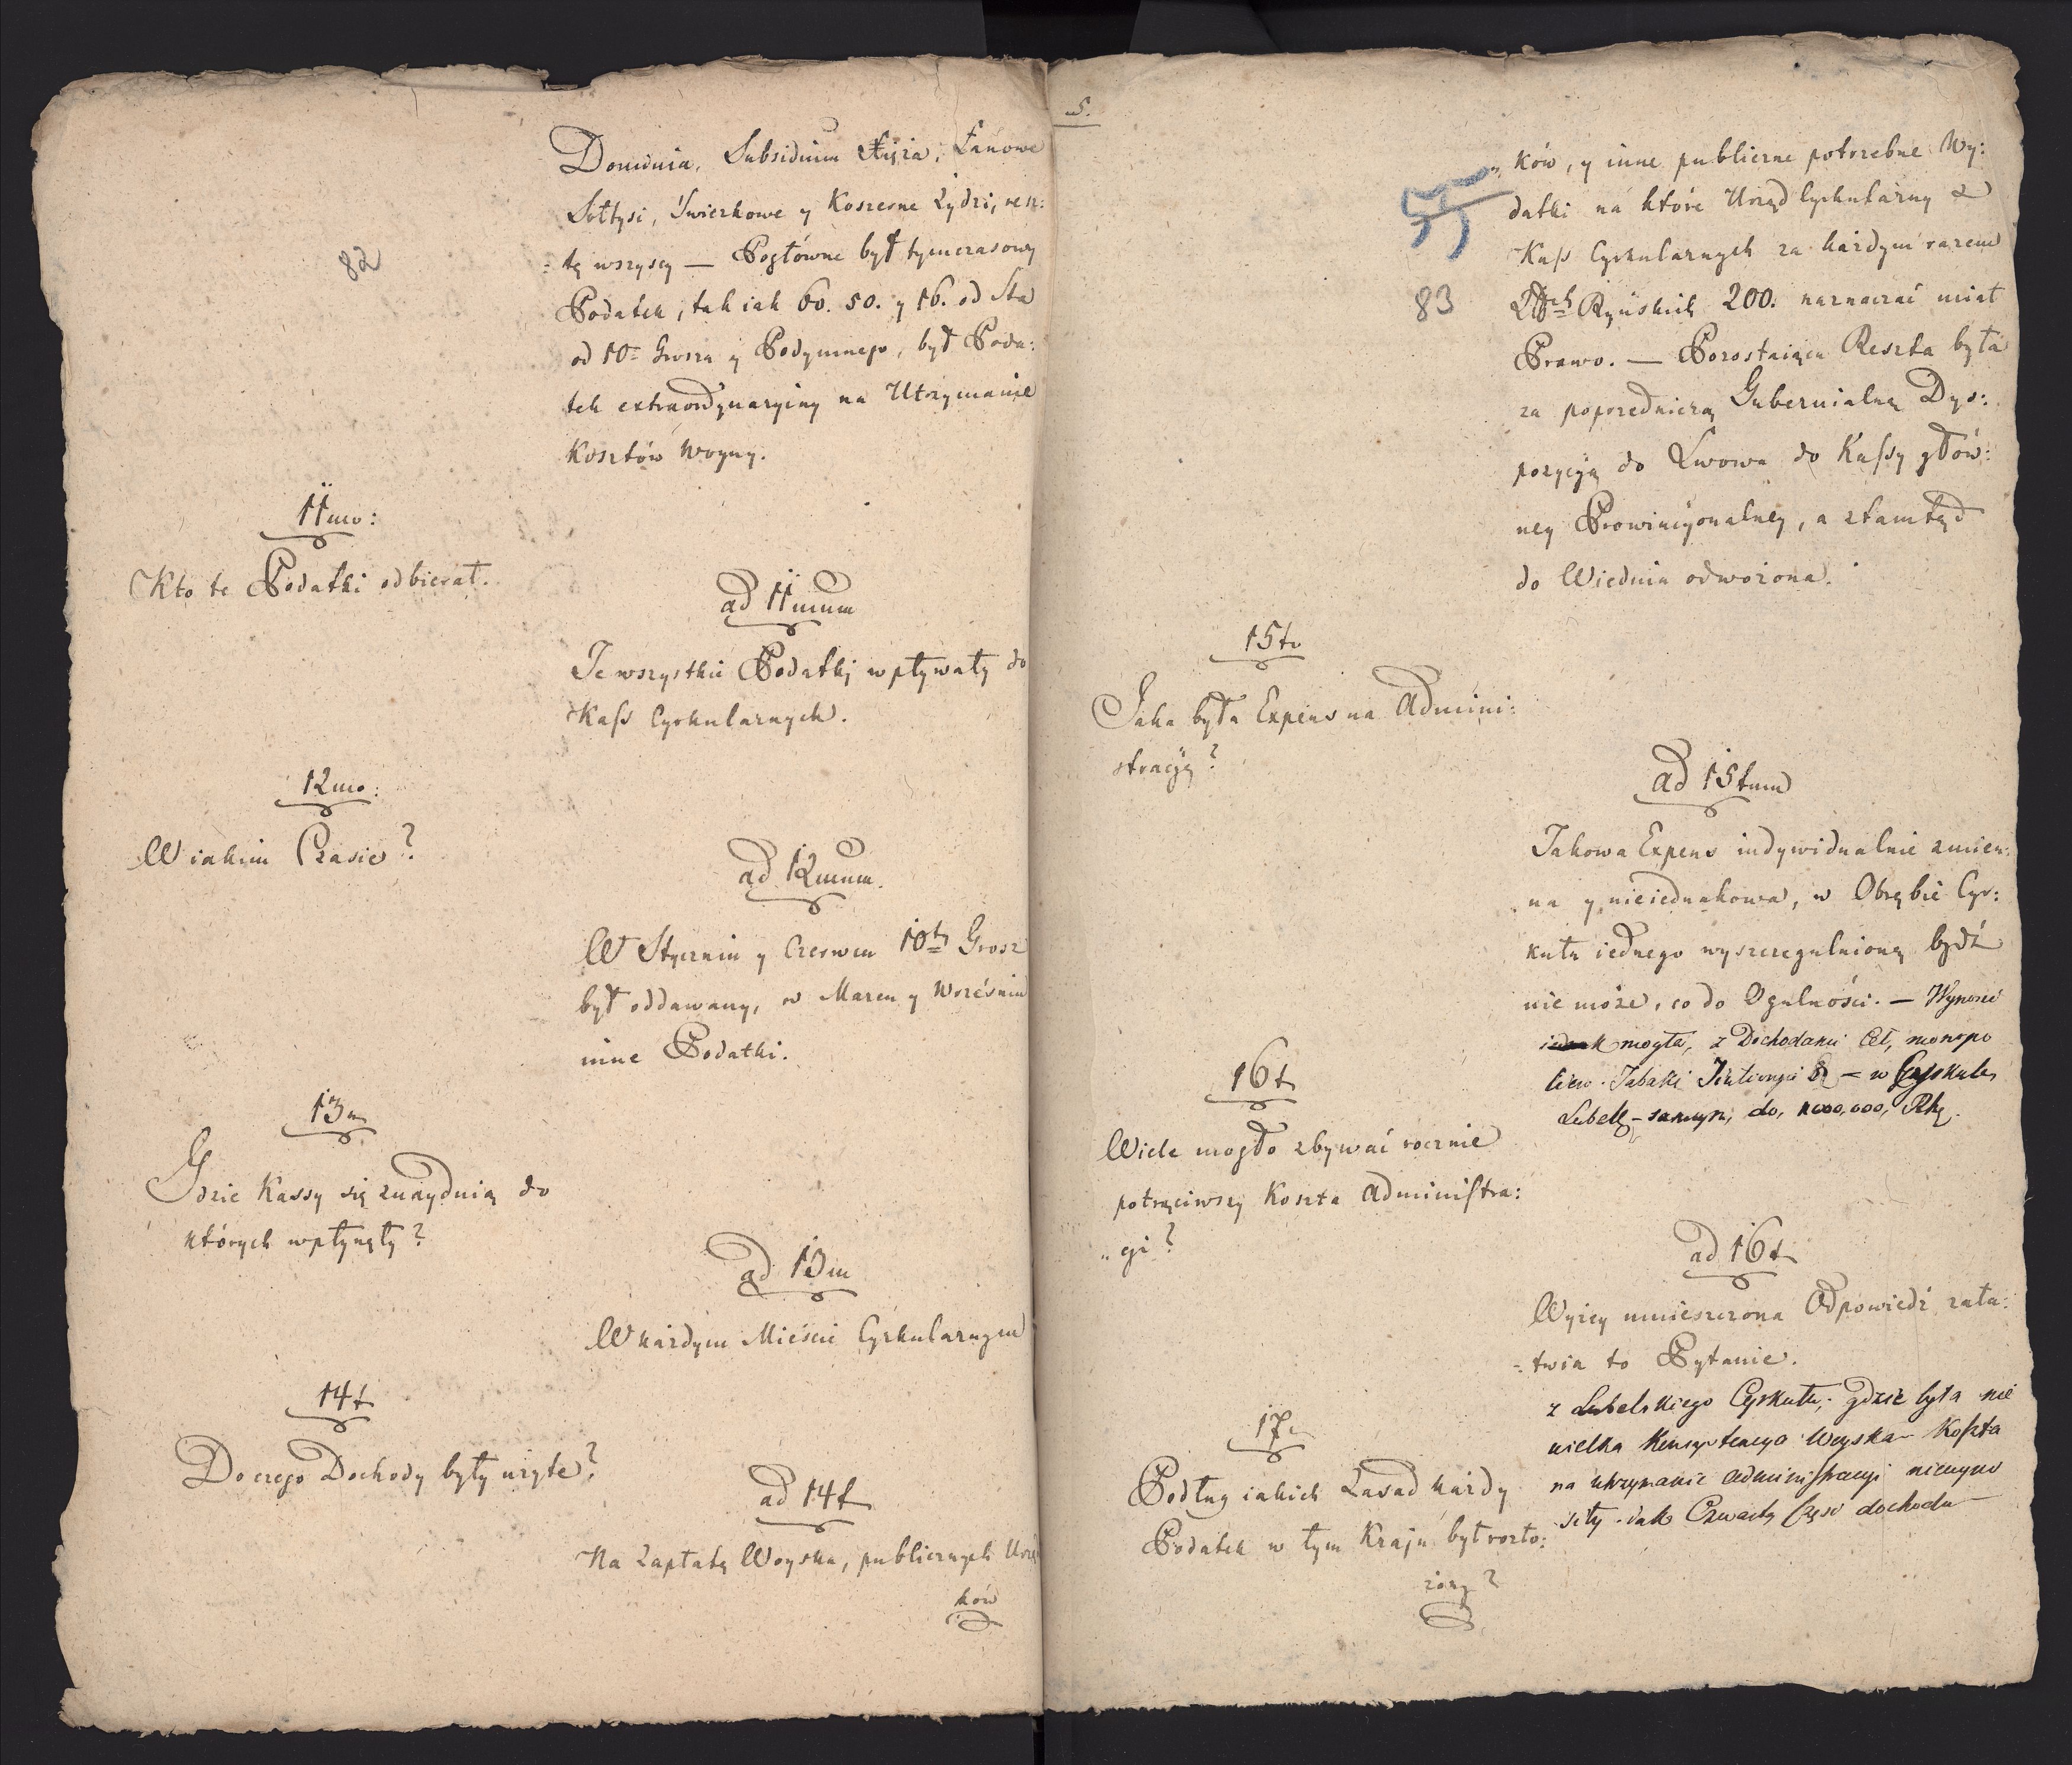 82
Dominia, Subsidium Xięża, Łanowe
Sołtysi, Świeczkowe y Koszerne Żydzi, resz:
:tę wszyscy — Pogłówne był tymczasowy
Podatek, tak iak 60. 50. y 16. od Sta
od 10º Grosza y Podymnego, był Poda:
tek extraordynaryiny na Utrzymanie
Kosztów Woyny.
11mo:
Kto te Podatki odbierał.
ad 11mum
Te wszystkie Podatki wpływały do
Kass Cyrkularnych.
12mo:
W iakim Czasie?
ad 12mum.
W Styczniu y Czerwcu 10ty Grosz
był oddawany, w Marcu y Wrześniu
inne Podatki.
13m
Gdzie Kassy się znayduią do
których wpłynęły?
ad 13m
W każdym Mieście Cyrkularnym
14t
Do czego Dochody były użyte?
ad 14t
Na Zapłatę Woyska, publicznych Urzęd
ków
5.
55
83
„ków, y inne publiczne potrzebne Wy:
datki na które Urząd Cyrkularny z
Kass Cyrkularnych za każdym razem
Złłch Ryńskich 200. naznaczać miał
Prawo. — Pozostaiąca Reszta była
za poprzedniczą Gubernialną Dys:
pozycyą do Lwowa do Kassy głów:
ney Prowincyonalney, a ztamtąd
do Wiednia odwożona.
15to
Jaka była Expens na Admini:
stracyą?
ad 15tum
Takowa Expens indywidualnie zmien:
na y nieiednakowa, w Obrębie Cyr:
kułu iednego wyszczegulnioną bydź
nie może, co do Ogulności. — Wynosić
mogła, z Dochodami Ceł, monopo
liów Tabaki &c — w Cyrkule
Lubell– samym, do, 1000,000, Rhę.
16t
Wiele mogło zbywać rocznie
potrąciwszy Koszta Administra:
„cyi?
ad 16t
Wyżey umieszczona Odpowiedź zała:
:twia to Pytanie.
z Lubelskiego Cyrkułu, gdzie była nie
wielka Woyska Koszta
na utrzymanie administracyi niewyno
siły iak Czwartą część dochodu
17m
Podług iakich Zasad każdy
Podatek w tym Kraju był rozło:
żony?